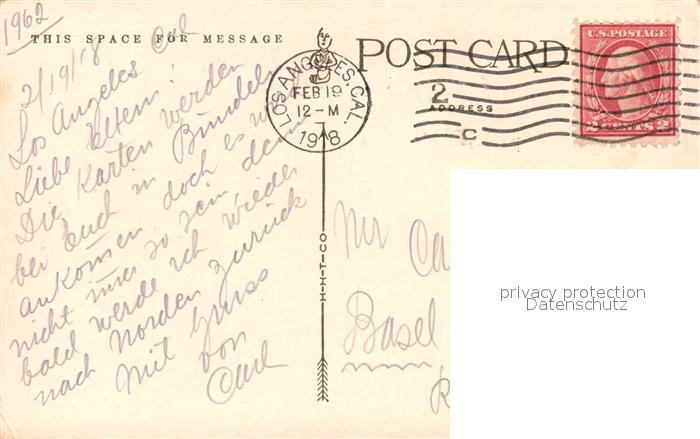 1962
THIS SPACE FOR MESSAGE
2/19/18
Los Angeles Cal
Liebe Eltern!
Die Karten werden
bei Euch in Bündel
ankommen doch es w
nicht immer so sein denn
bald werde ich wieder
nach Norden zurück
Mit Gruss
von
Carl
POST CARD
LOS ANGELES, CAL.
FEB 19
12-M
1918
2
ADDRESS
C
U.S. POSTAGE
2 CENTS 2
H-H-T-CO
Mr Ca
Basel
privacy protection
Datenschutz